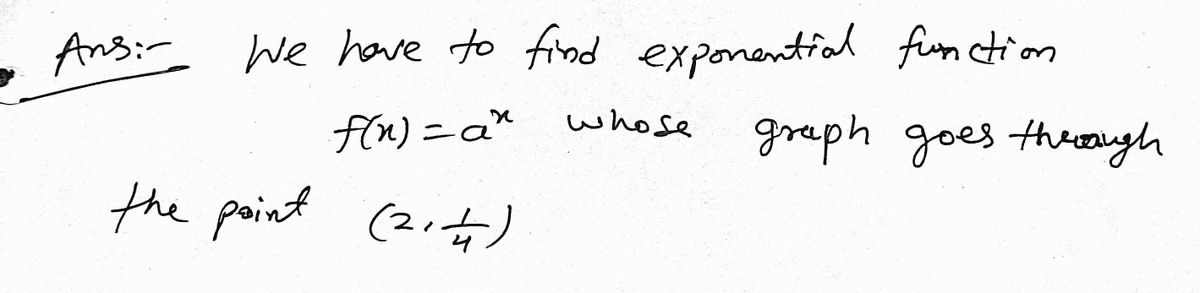 Ans:- We have to find exponential function
f(x) = a^x whose graph goes through
the point (2, 1/4)